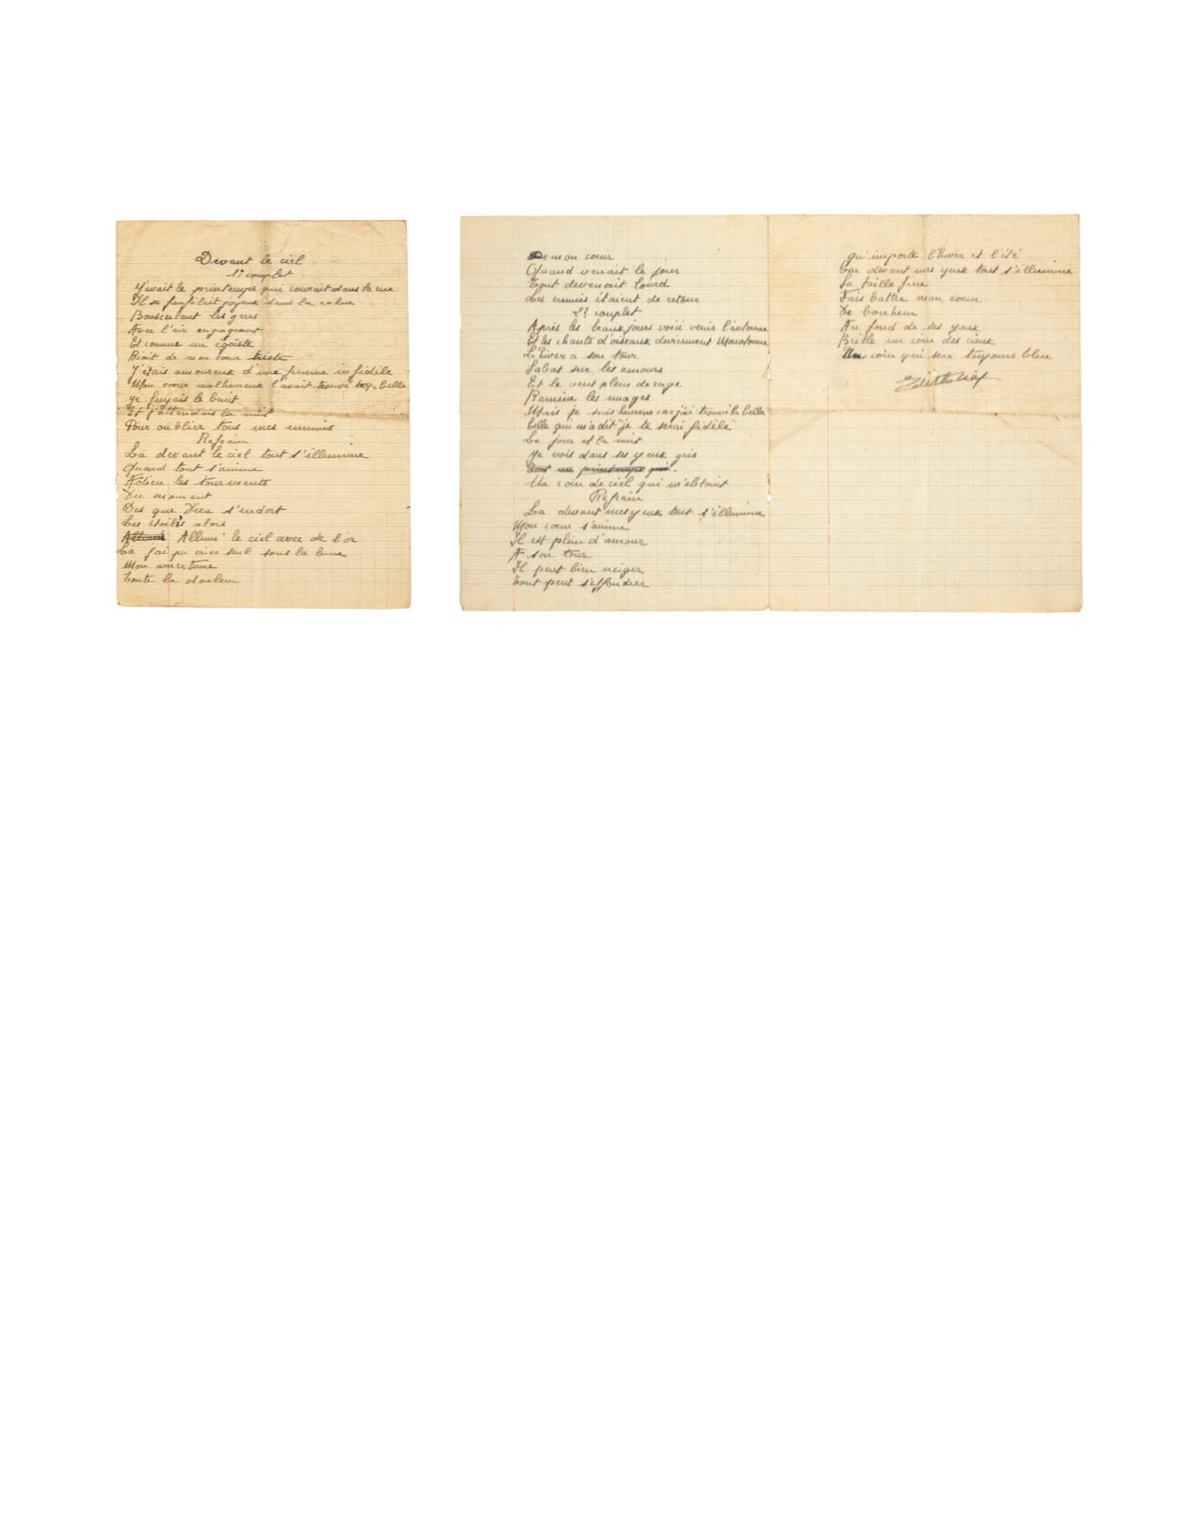 Devant le ciel
1er couplet
Y'avait le printemps qui courait dans la rue
Il se faufilait joyeux dans la cohue
Bousculant les gens
Avec l'air engageant
Et comme un égoïste
Riait de mon cœur triste
J'étais amoureux d'une femme infidèle
Mon cœur malheureux l'avait trouvé trop belle
Je fuyais le bruit
Et j'attendais la nuit
Pour oublier tous mes ennuis
Refrain
Là devant le ciel tout s'illumine
Quand tout s'anime
Adieu les tourments
Du moment
Des que Dieu s'endort
Les étoiles alors
Allume le ciel avec de l'or
La j'ai pu crier seul sous la lune
Mon amertume
Toute la douleur
De mon cœur
Quand venait le jour
Tout devenait lourd
Les ennuis étaient de retour
2e couplet
Après les beaux jours voici venir l'automne
Et les chants d'oiseaux deviennent monotonne
L'hiver a son tour
S'abat sur les amours
Et le vent plein de rage
Ramène les nuages
Mais je suis heureux car j'ai trouvé la belle
Celle qui m'a dit "je te serai fidèle"
Le jour et la nuit
Je vois dans ses yeux gris
Un coin de ciel qui m'éblouit
Refrain
La devant mes yeux tout s'illumine
Mon cœur s'anime
Il est plein d'amour
A son tour
Il peut bien neiger
Tout peut s'effondrer
qu'importe l'hiver et l'été
Car devant mes yeux tout s'illumine
Sa taille fine
Fais battre mon cœur
De bonheur
Au fond de ses yeux
Brille un coin des cieux
Un coin qui sera toujours bleu
Edith Piaf